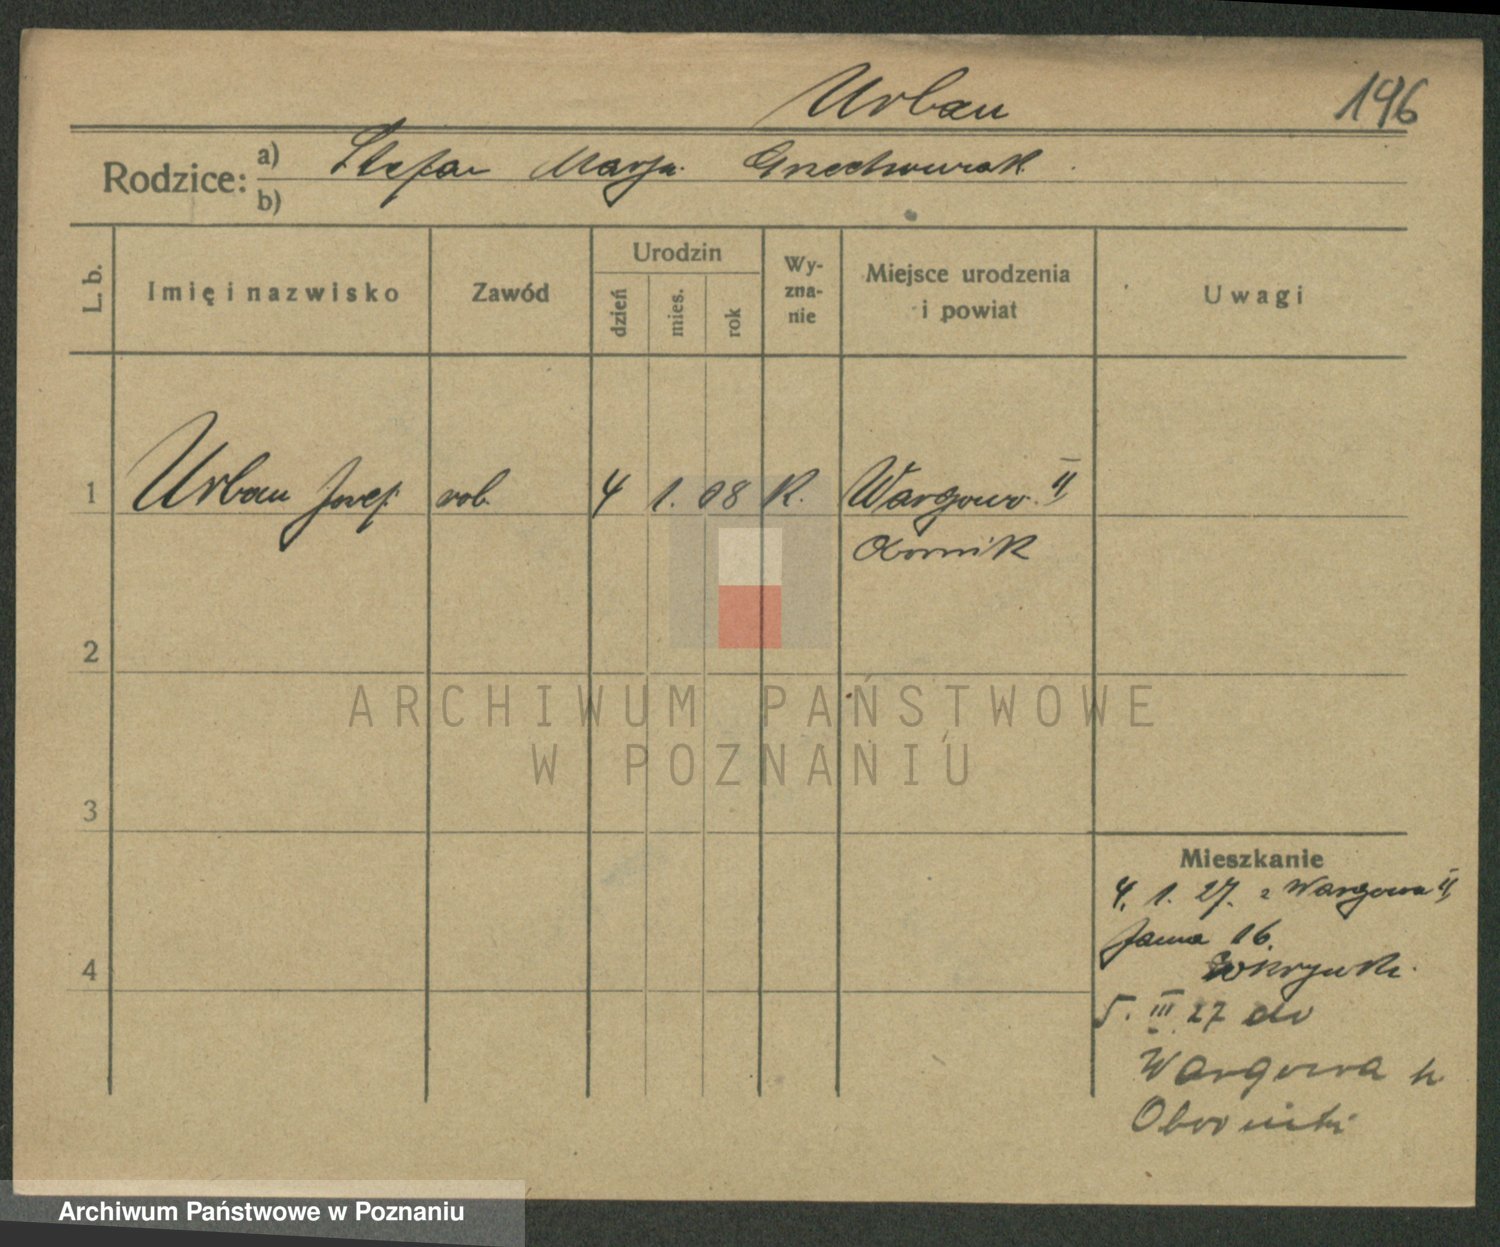 Urban
196
Rodzice: a) Stefan Marja
b)
L. b.
Imię i nazwisko
Zawód
Urodzin
dzień
mies.
rok
Wy-
zna-
nie
Miejsce urodzenia
i powiat
Uwagi
1 Urban Józef rob. 4 1. 08 K. Wargowo II
Obornik
2
3
4
Mieszkanie
4. 1. 27. z Wargowa II
16.
5. III 27 do
Wargowa p
Obornicki
ARCHIWUM PAŃSTWOWE
W POZNANIU
Archiwum Państwowe w Poznaniu